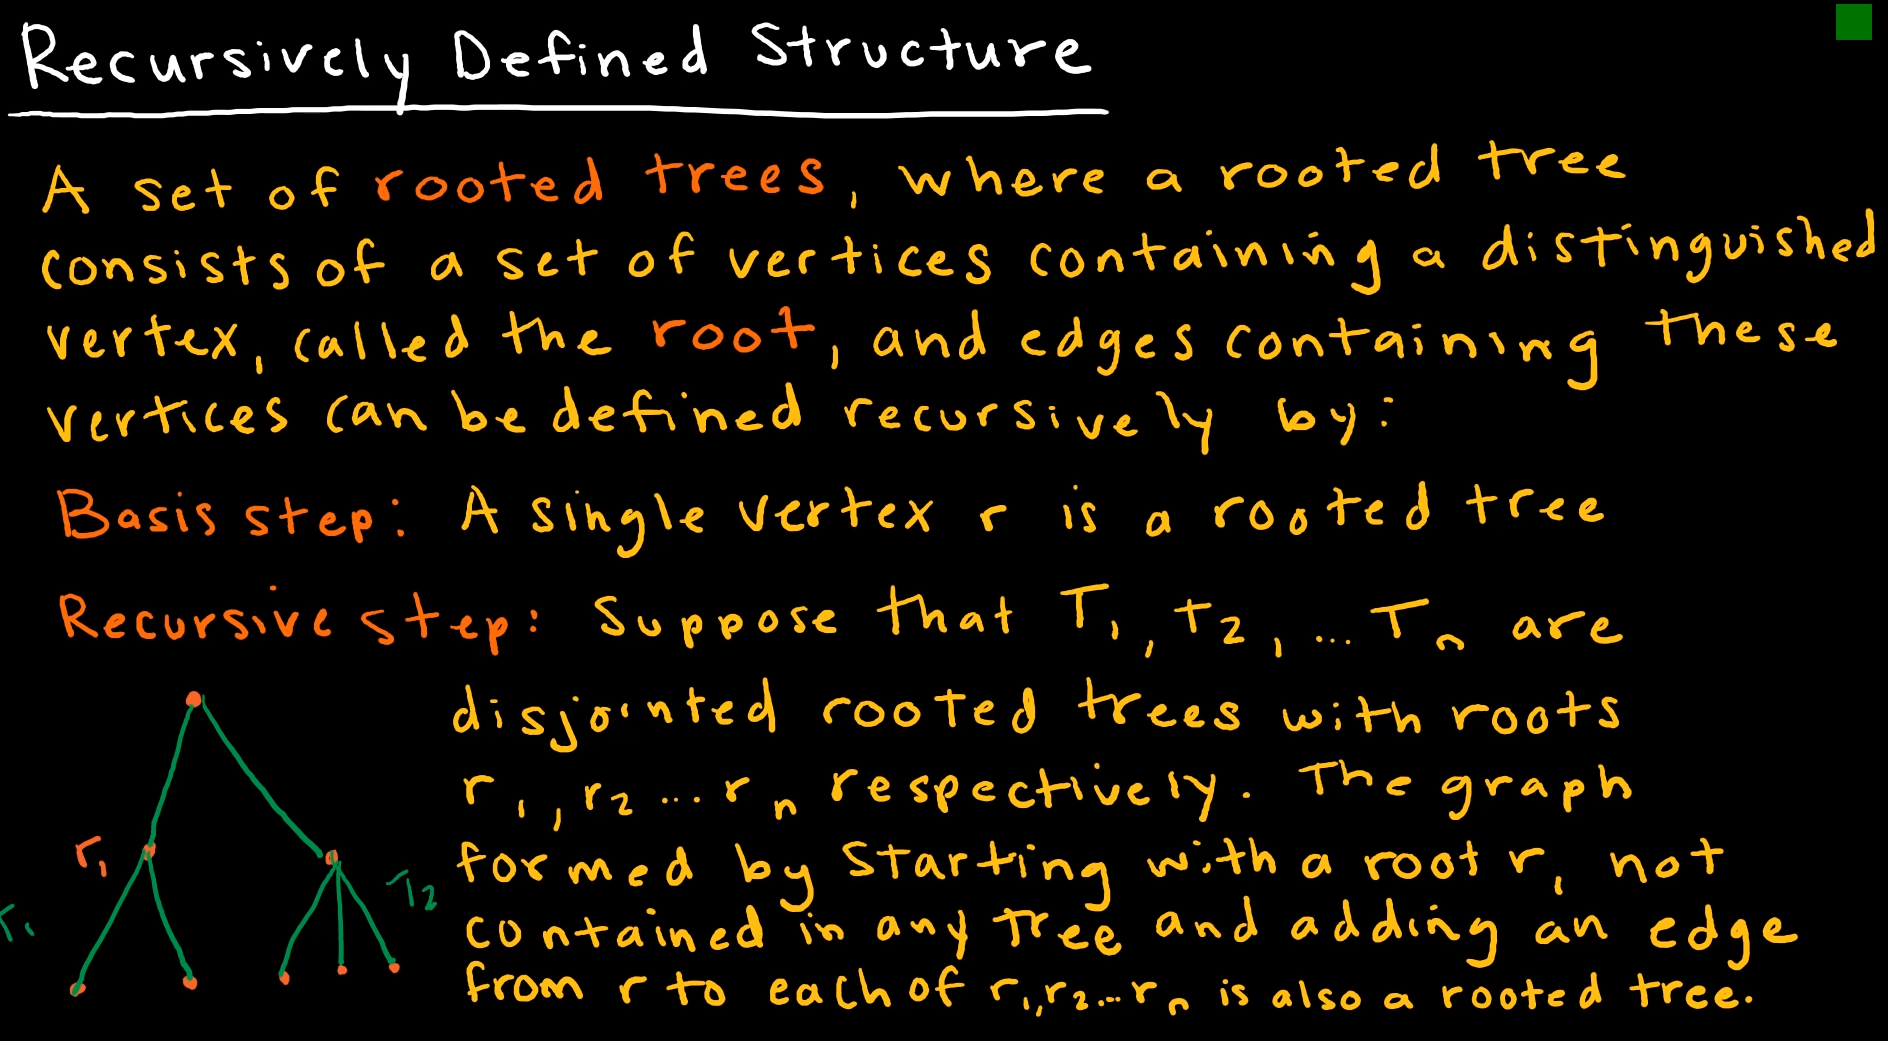 Recursively Defined Structure
A set of rooted trees, where a rooted tree
consists of a set of vertices containing a distinguished
vertex, called the root, and edges containing these
vertices can be defined recursively by:
Basis step: A single vertex r is a rooted tree
Recursive step: Suppose that T₁, T₂, ... Tₙ are
disjointed rooted trees with roots
r₁, r₂ ... rₙ respectively. The graph
formed by starting with a root r, not
contained in any tree and adding an edge
from r to each of r₁, r₂ ... rₙ is also a rooted tree.
r₁
T₁
T₂